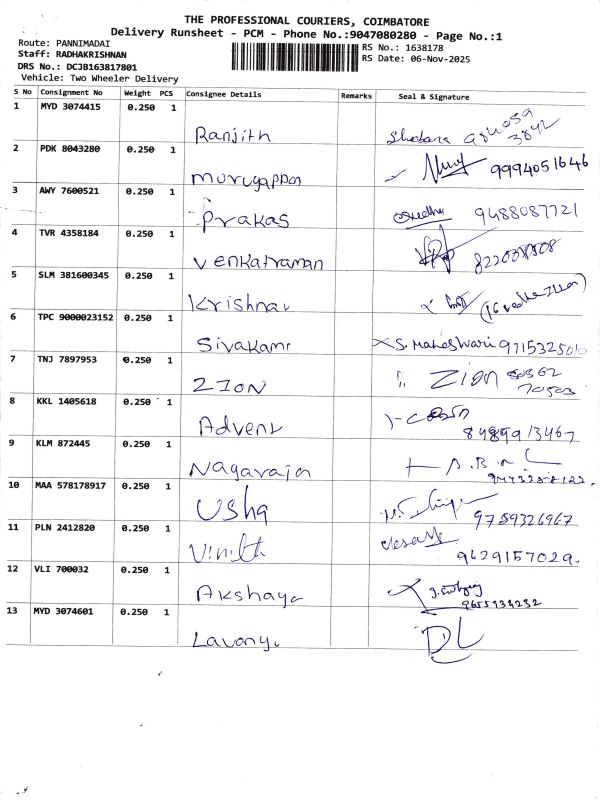 THE PROFESSIONAL COURIERS, COIMBATORE
Delivery Runsheet - PCM - Phone No.:9047080280 - Page No.:1
Route: PANNIMADAI
RS No.: 1638178
Staff: RADHAKRISHNAN
RS Date: 06-Nov-2025
DRS No.: DCJB163817801
Vehicle: Two Wheeler Delivery
S No Consignment No Weight PCS Consignee Details Remarks Seal & Signature
1 MYD 3074415 0.250 1
Ranjith
2 PDK 8043280 0.250 1
Murugappan 9994051646
3 AWY 7600521 0.250 1
Prakas 9488087721
4 TVR 4358184 0.250 1
Venkatraman
5 SLM 381600345 0.250 1
Krishnav
6 TPC 9000023152 0.250 1
Sivakami S. Maheshwari
7 TNJ 7897953 0.250 1
ZION Zion
8 KKL 1405618 0.250 1
Advent
9 KLM 872445 0.250 1
Nagaraja
10 MAA 578178917 0.250 1
Usha 9759326967
11 PLN 2412820 0.250 1
Vinith 9629157029.
12 VLI 700032 0.250 1
Akshaya 9655938232
13 MYD 3074601 0.250 1
Lavany DL